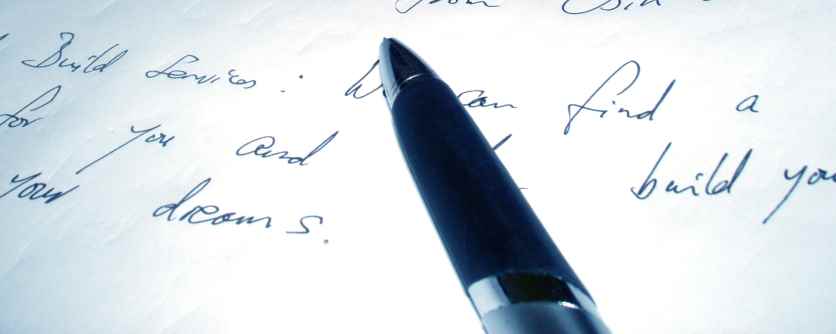 from
Build Services: We can find a
for you and build you
your dreams.